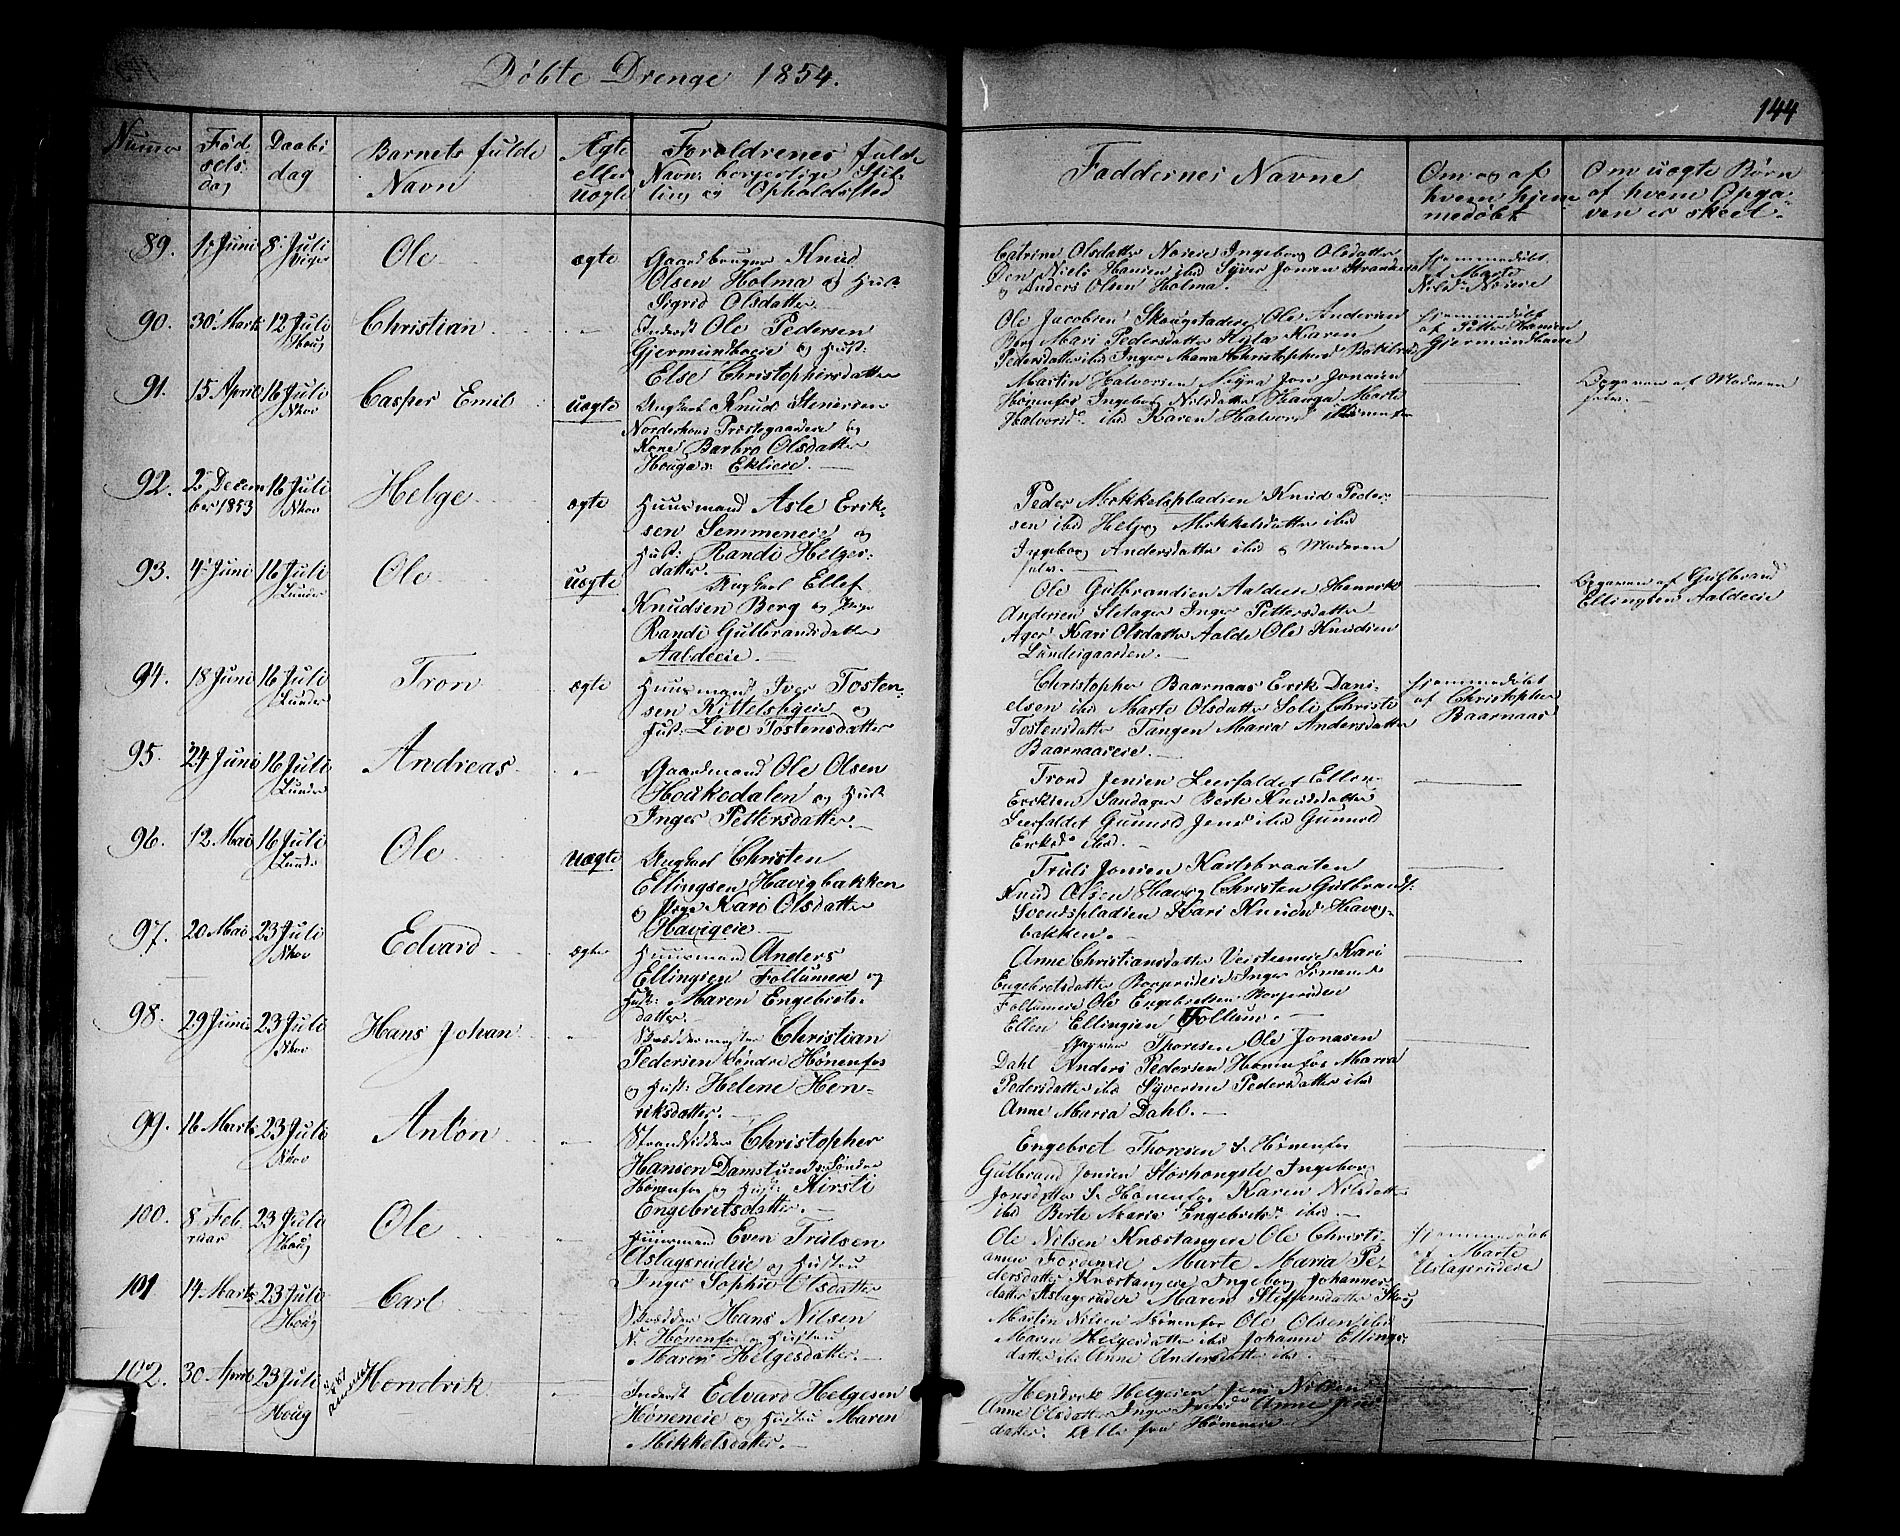 Döbte Drenge 1854.
144
Fød
sels
dag
Daabs
dag
Barnets fulde
Navn
Ægte
eller
uægte
Forældrenes fulde
Navn: borgerlige Stil
ling og Opholdssted
Faddernes Navne
Om og af
hvem hjem
medøbt
Om uægte Børn
af hvem Opga
ven er skeet
89. 1 Juni 8 Juli
Ole
ægte
Gaardbruger Knud
Olsen Holma og Hust
Sigrid Olsdatter
Catrine Olsdatter Ingeborg Olsdatter
Niels Hansen ibd Syver Jonsen
og Anders Olsen Holma.
hjemmedöbt
af Marte
90. 30 Marts 12 Juli
Houg
Christian
Inderst Ole Pedersen
Gjermundboeie og Hust:
Else Christophersdatter
Ole Jacobsen Ole Andersen
Berg Mari Pedersdatter Karen
Pedersdatter ibd Inger Maria Christophers
hjemmedöbt
af Petter Hansen
91. 15 April 16 Juli
Nhov
Casper Emil
uægte
Ungkarl Knud Stenersen
Norderhovs Præstegaardeie og
Kone Barbro Olsdatter
Eklieie.
Martin Halvorsen Myra Jon Jonsen
Hönenfos Ingeborg Nilsdatter Hauga Marte
Halvorsd ibd Karen Halvorsd Hönenfos
Opgaven af Moderen
selv.
92. 2 Decem
ber 1853 16 Juli
Nhov
Helge
ægte
Huusmand Asle Erik-
sen Semmeneie og
Hust: Randi Helges-
datter.
Peder Mokkelspladsen Knud Peder-
sen ibd Helge Mikkelsdatter ibd
Ingeborg Andersdatter ibd og Moderen
selv.
93. 4 Juni 16 Juli
Lunder
Ole
uægte
Ungkarl Ellef
Knudsen Berg og Pige
Randi Gulbrandsdatter
Aaldeeie.
Ole Gulbrandsen Aaldeeie Henrik
Andersen Sletager Inger Pettersdatter
Ager Kari Olsdatter Aalde Ole Knudsen
Lundesgaarden.
Opgaven af Gulbrand
Ellingsen Aaldeeie
94. 18 Juni 16 Juli
Lunder
Tron
ægte
Huusmand Iver Tosten-
sen Kittelsbyeie og
Hust: Live Tostensdatter
Christopher Baarnaas Erik Dani-
elsen ibd Marte Olsdatter Soli Christi
Tostensdatter Tangen Maria Andersdatter
Baarnaaseie.
hjemmedöbt
af Christopher
Baarnaas
95. 24 Juni 16 Juli
Lunder
Andreas
Gaardmand Ole Olsen
og Hust
Inger Pettersdatter.
Trond Jensen Leerfaldet Ellen
Eriksen Sandager Berte Knudsdatter
Leerfaldet Gunnild Jensd ibd Gunnild
Eriksd ibd.
96. 12 Mai 16 Juli
Lunde
Ole
uægte
Ungkarl Christen
Ellingsen Havigbakken
og Pige Kari Olsdatter
Havigeie.
Truls Jonsen Karlsbraaten
Knud Olsen Havig Christen Gulbrands
Svendspladsen Kari Knudsd Havig-
bakken.
97. 20 Mai 23 Juli
Nhov
Edvard
ægte
Huusmand Anders
Ellingsen Follumeie og
Hust: Maren Engebrets-
datter.
Anne Christiansdatter Kari
Engebretsdatter Inger Simensd
Follumeie Ole Engebretsen
Ellen Ellingsen Follum.
98. 29 Juni 23 Juli
Nhov
Hans Johan
Skræddermester Christian
Pedersen Söndre Hönenfos
og Hust: Helene Hen-
riksdatter.
Thoresen Ole Jonasen
Dahl Anders Pedersen Hönenfos Maria
Pedersdatter ibd Syverine Pedersdatter ibd
Anne Maria Dahl.
99. 16 Marts 23 Juli
Nhov
Anton
Strandsidder Christopher
Hansen Damstuen Söndre
Hönenfos og Hust: Kirsti
Engebretsdatter.
Engebret Thoresen S. Hönenfos
Gulbrand Jonsen Ingeborg
Jonsdatter S. Hönenfos Karen Nilsdatter
ibd Berte Maria Engebretsd ibd.
100. 8 Feb
ruar 23 Juli
Houg
Ole
Huusmand Even Trulsen
Aslagsrudeie og Hustru
Inger Sophie Olsdatter
Ole Nilsen Knæstangen Ole Christi-
Marte Maria Pe-
dersdatter Knæstangeie Ingeborg Johannes-
datter Aslagsrudeie Maren Steffensdatter Houg
hjemmedöbt
af Marte
Aslagsrudeie
101 14 Marts 23 Juli
Houg
Carl
Skrædder Hans Nilsen
N. Hönenfos og Hustru
Maren Helgesdatter.
Martin Nilsen Hönenfos Ole Olsen ibd
Maren Helgesdatter ibd Johanne Ellings-
datter ibd Anne Andersdatter ibd.
102. 30 April 23 Juli
Houg
Hendrik
Inderst Edvard Helgesen
Höneneie og Hustru Maren
Mikkelsdatter.
Hendrik Helgesen Jens Nilsen
Anne Olsdatter Inger Anne Jens
datter. Alle fra Höneneie